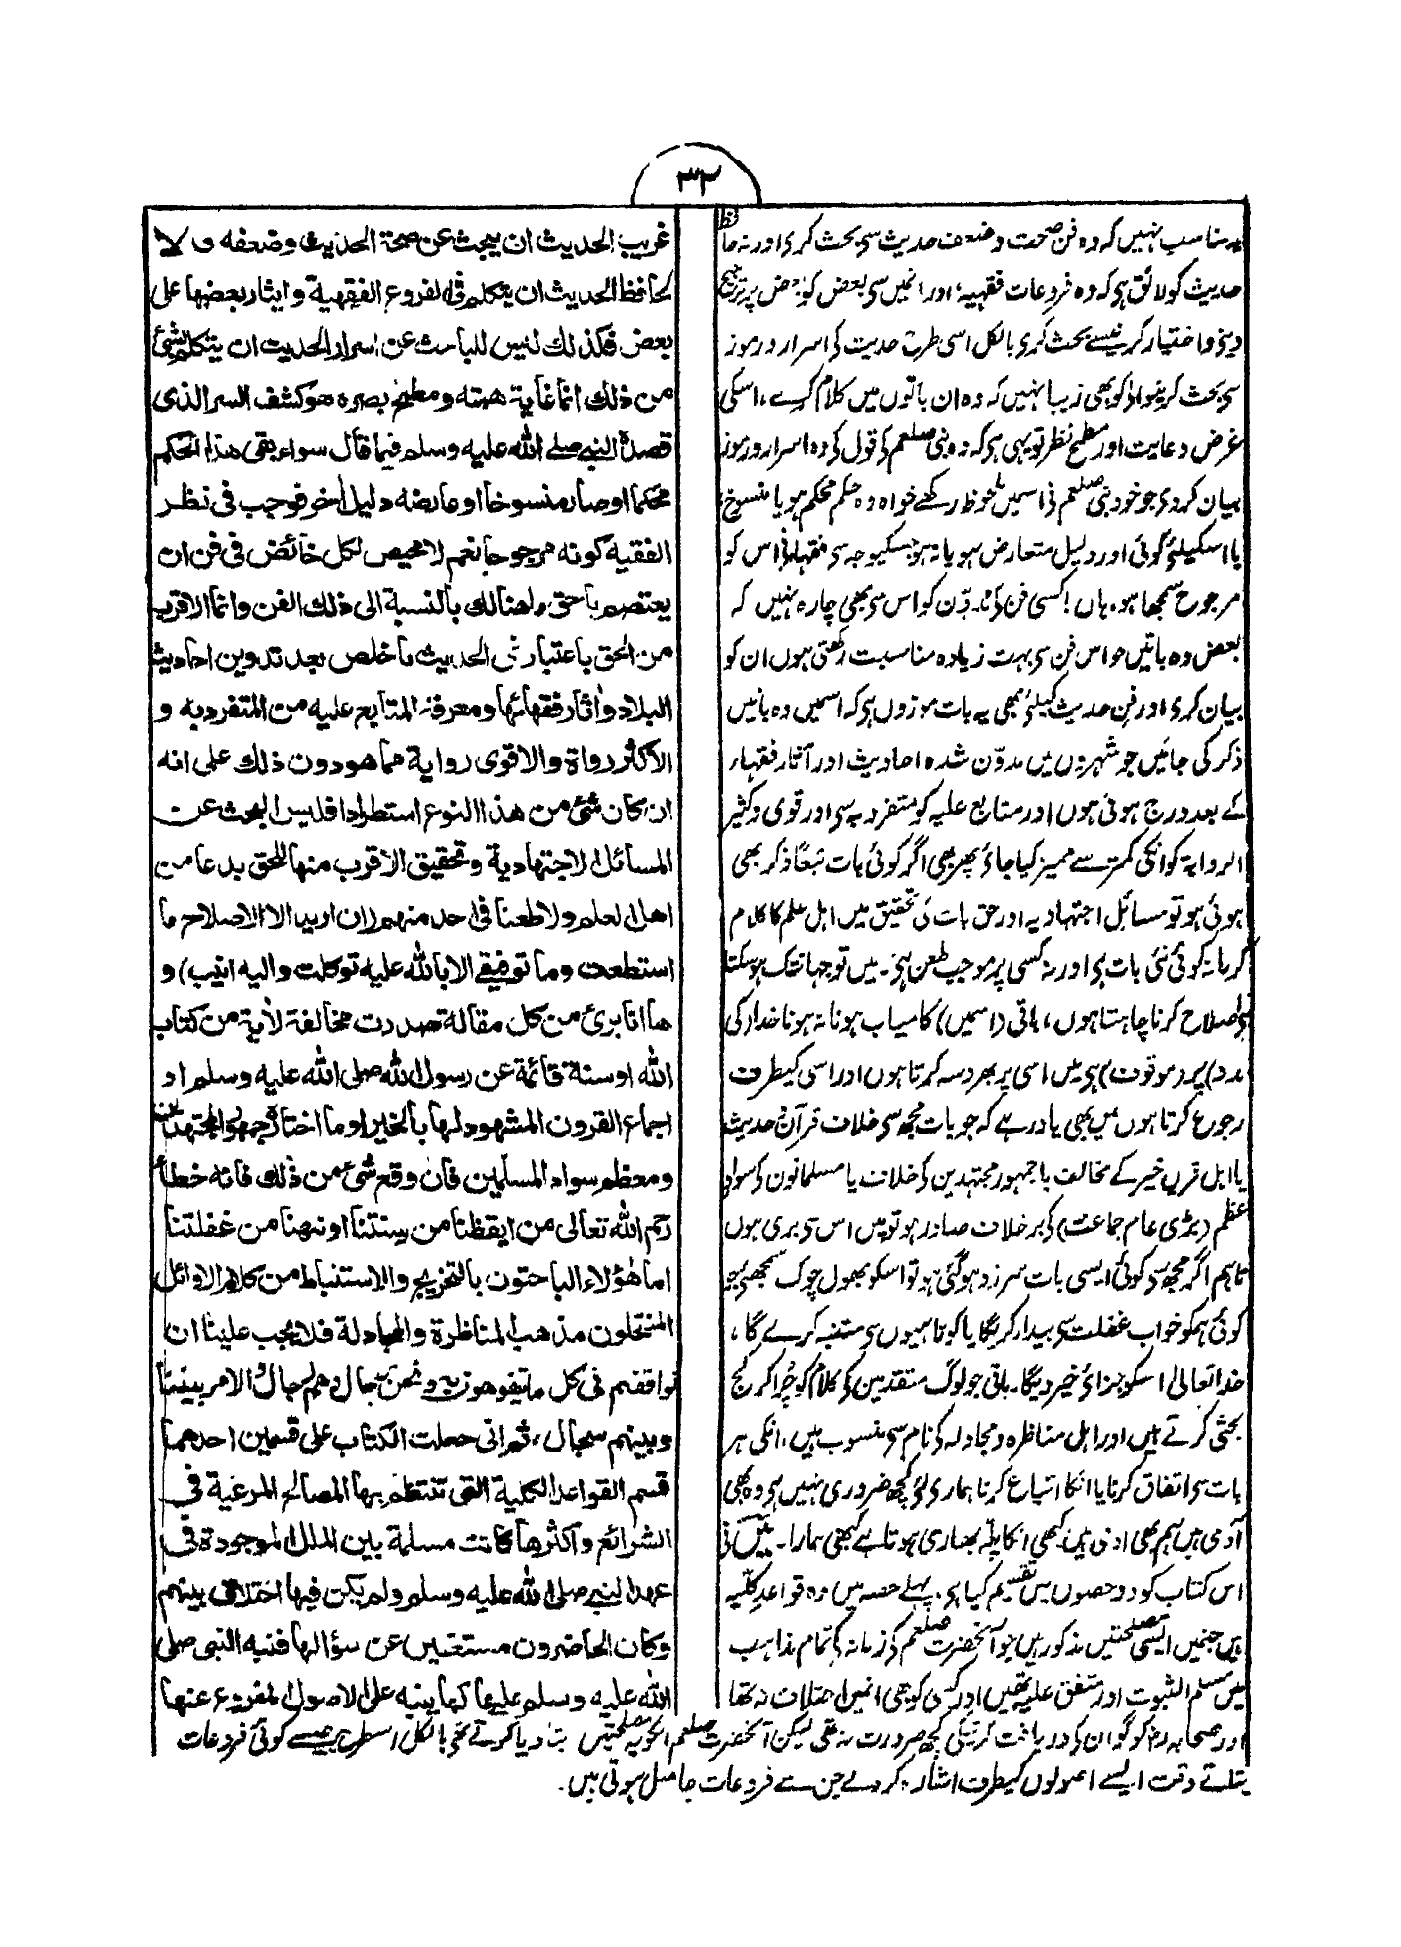 ۳۲
یہ مناسب نہیں کہ وہ فن صحت و ضعف حدیث سی بحث کری اور نہ حافظ
حدیث کو لائق ہی کہ وہ فروعات فقہیہ، اور انمیں سی بعض کو بعض پر ترجیح
دینی و اختیار کرنیسے بحث کری بالکل اسی طرح حدیث کی اسرار و رموز
سی بحث کرنیوالی کو بھی زیبا نہیں کہ وہ ان باتوں میں کلام کرے، اسکی
غرض و غایت اور مطمح نظر تو یہی ہی کہ وہ نبی صلعم کی قول کی وہ اسرار و رموز
بیان کردی جو خود نبی صلعم نی اسمیں ملحوظ رکھے خواہ وہ حکم محکم ہو یا منسوخ
یا اسکیلئی کوئی اور دلیل متعارض ہو یا نہ ہو جسکیوجہ سی فقہاء نی اس کو
مرجوح سمجھا ہو، ہاں! کسی فن کی مدون کو اس سی بھی چارہ نہیں کہ
بعض وہ باتیں جو اس فن سی بہت زیادہ مناسبت رکھتی ہوں ان کو
بیان کری اور فن حدیث کیلئی بھی یہ بات موزوں ہی کہ اسمیں وہ باتیں
ذکر کی جائیں جو شہروں میں مدوّن شدہ احادیث اور آثار فقہاء
کے بعد درج ہوئی ہوں اور متابع علیہ کو متفرد بہ سی اور قوی و کثیر
الروایۃ کو انکی کمتر سے ممیز کیا جاوٴ پھر بھی اگر کوئی بات تبعًا ذکر بھی
ہوئی ہو تو مسائل اجتہادیہ اور حق بات کی تحقیق میں اہل علم کا کلام
کرنا نہ کوئی نئی بات ہی اور نہ کسی پر موجب طعن ہی۔ میں تو جہانتک ہو سکتا
ہی اصلاح کرنا چاہتا ہوں، باقی (اسمیں) کامیاب ہونا نہ ہونا خدا کی
مدد) پر (موقوف) ہی میں اسی پر بھروسہ کرتا ہوں اور اسی کیطرف
رجوع کرتا ہوں میں بھی یاد رہے کہ جو بات مجھ سی خلاف قرآن و حدیث
یا اہل قرن خیر کے مخالف یا جمہور مجتہدین کی خلاف یا مسلمانون کی سواد
اعظم (بڑی عام جماعت) کی برخلاف صادر ہو تو میں اس سی بری ہوں
تاہم اگر مجھ سی کوئی ایسی بات سرزد ہوگئی ہو تو اسکو بھول چوک سمجھی جو
کوئی ہمکو خواب غفلت سی بیدار کریگا یا کوتاہیوں سی متنبہ کرے گا،
خدا تعالیٰ اسکو جزائی خیر دیگا۔ باقی جو لوگ متقدمین کی کلام کو چُرا کر کج
بحثی کرتے ہیں اور اہل مناظرہ و مجادلہ کی نام سی منسوب ہیں، انکی ہر
بات سی اتفاق کرنا یا انکا اتباع کرنا ہماری لئی کچھ ضروری نہیں ہی وہ بھی
آدمی ہیں ہم بھی آدمی ہیں۔ کبھی انکا پلّہ بھاری ہوتا ہے کبھی ہمارا۔ میں نی
اس کتاب کو دو حصوں میں تقسیم کیا ہی، پہلے حصہ میں وہ قواعد کلّیہ
ہیں جنمیں ایسی مصلحتیں مذکور ہیں جو آنحضرت صلعم کی زمانہ کی تمام مذاہب
میں مسلم الثبوت اور متفق علیہ تھیں اور کسی کو بھی انمیں اختلاف نہ تھا
غریب الحدیث ان یبحث عن صحۃ الحدیث وضعفہ ولا
لحافظ الحدیث ان یتکلم فی الفروع الفقھیۃ وایثار بعضھا علی
بعض فکذلک لیس للباحث عن اسرار الحدیث ان یتکلم بشئ
من ذلک انما غایۃ ھمتہ ومطمح بصرہ ھو کشف السر الذی
قصدہ النبی صلی اللہ علیہ وسلم فیما قال سواء بقی ھذا الحکم
محکما او صار منسوخا او عارضہ دلیل اٰخر فوجب فی نظر
الفقیہ کونہ مرجوحا نعم لا محیص لکل خائض فی فن ان
یعتصم باحق ماھنالک بالنسبۃ الی ذلک الفن وانما الاقرب
من الحق باعتبار فن الحدیث ما خلص بعد تدوین احادیث
البلاد واٰثار فقھائھا ومعرفۃ المتابع علیہ من المتفرد بہ و
الاکثر رواۃ والاقوی روایۃ مما ھو دون ذلک علی انہ
ان کان شئ من ھذا النوع استطرادا فلیس البحث عن
المسائل الاجتھادیۃ وتحقیق الاقرب منھا للحق بدعا من
اھل العلم ولا طعنا فی احد منھم (ان ارید الا الاصلاح ما
استطعت وما توفیقی الا باللہ علیہ توکلت والیہ انیب) و
ھا انا برئ من کل مقالۃ صدرت مخالفۃ لاٰیۃ من کتاب
اللہ او سنۃ قائمۃ عن رسول اللہ صلی اللہ علیہ وسلم او
اجماع القرون المشھود لھا بالخیر او ما اختارہ جمھور المجتھدین
ومعظم سواد المسلمین فان وقع شئ من ذلک فانہ خطأ
رحم اللہ تعالی من ایقظنا من سنتنا او نبھنا من غفلتنا
اما ھؤلاء الباحثون بالتخریج والاستنباط من کلام الاوائل
المنتحلون مذھب المناظرۃ والمجادلۃ فلا یجب علینا ان
نوافقھم فی کل ما یتفوھون بہ ونحن رجال وھم رجال والامر بیننا
وبینھم سجال، ثم انی جعلت الکتاب علی قسمین احدھما
قسم القواعد الکلیۃ التی تنتظم بھا المصالح المرعیۃ فی
الشرائع واکثرھا کانت مسلمۃ بین الملل الموجودۃ فی
عھد النبی صلی اللہ علیہ وسلم ولم یکن فیھا اختلاف بینھم
وکان الحاضرون مستغنین عن سؤالھا فنبہ النبی صلی
اللہ علیہ وسلم علیھا کما ینبہ علی الاصول المفروع عنھا
اور صحابہ رضہ کو گو ان کی دریافت کرنیکی کچھ ضرورت نہ تھی لیکن آنحضرت صلعم انکو یہ مصلحتیں بتا دیا کرتے تھی بالکل اسطرح جیسے کوئی فروعات
بتلاتے وقت ایسے اصولوں کیطرف اشارہ کردے جن سے فروعات حاصل ہوتی ہیں۔